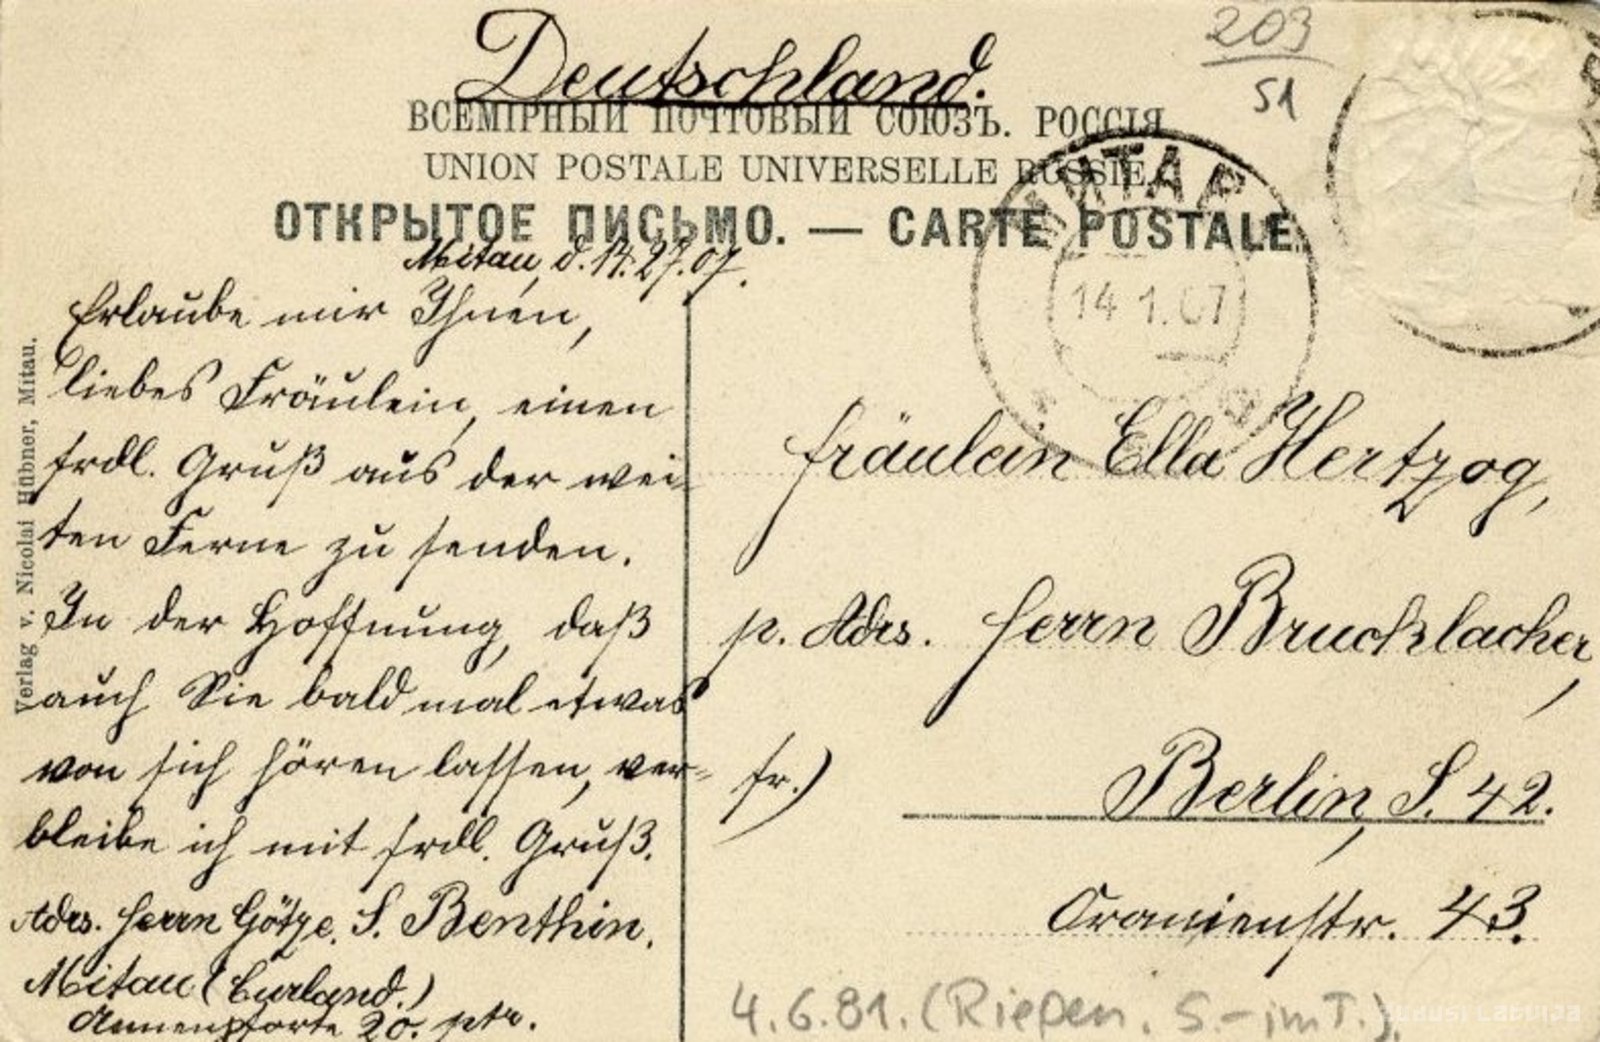 Deutschland.
203
51
ВСЕМІРНЫЙ ПОЧТОВЫЙ СОЮЗЪ. РОССІЯ
UNION POSTALE UNIVERSELLE RUSSIE
ОТКРЫТОЕ ПИСЬМО. — CARTE POSTALE.
МИТАВ
14 1.07
Mitau, d. 14. 27. 07.
Erlaube mir Ihnen,
liebes Fräulein, einen
frdl. Gruß aus der wei-
ten Ferne zu senden.
In der Hoffnung, daß
auch Sie bald mal etwas
von sich hören lassen, ver-
bleibe ich mit frdl. Gruß.
Adrs. Herrn Götze. S. Benthin.
Mitau (Curland.)
Annenpforte 20. ptr.
Verlag v. Nicolai Hübner, Mitau.
Fräulein Ella Hertzog,
p. Adrs. Herrn Brucklacher,
fr.)
Berlin, S. 42.
Oranienstr. 43.
4.6.81. (Riefen. S.-im T.).
zudusi Latvija